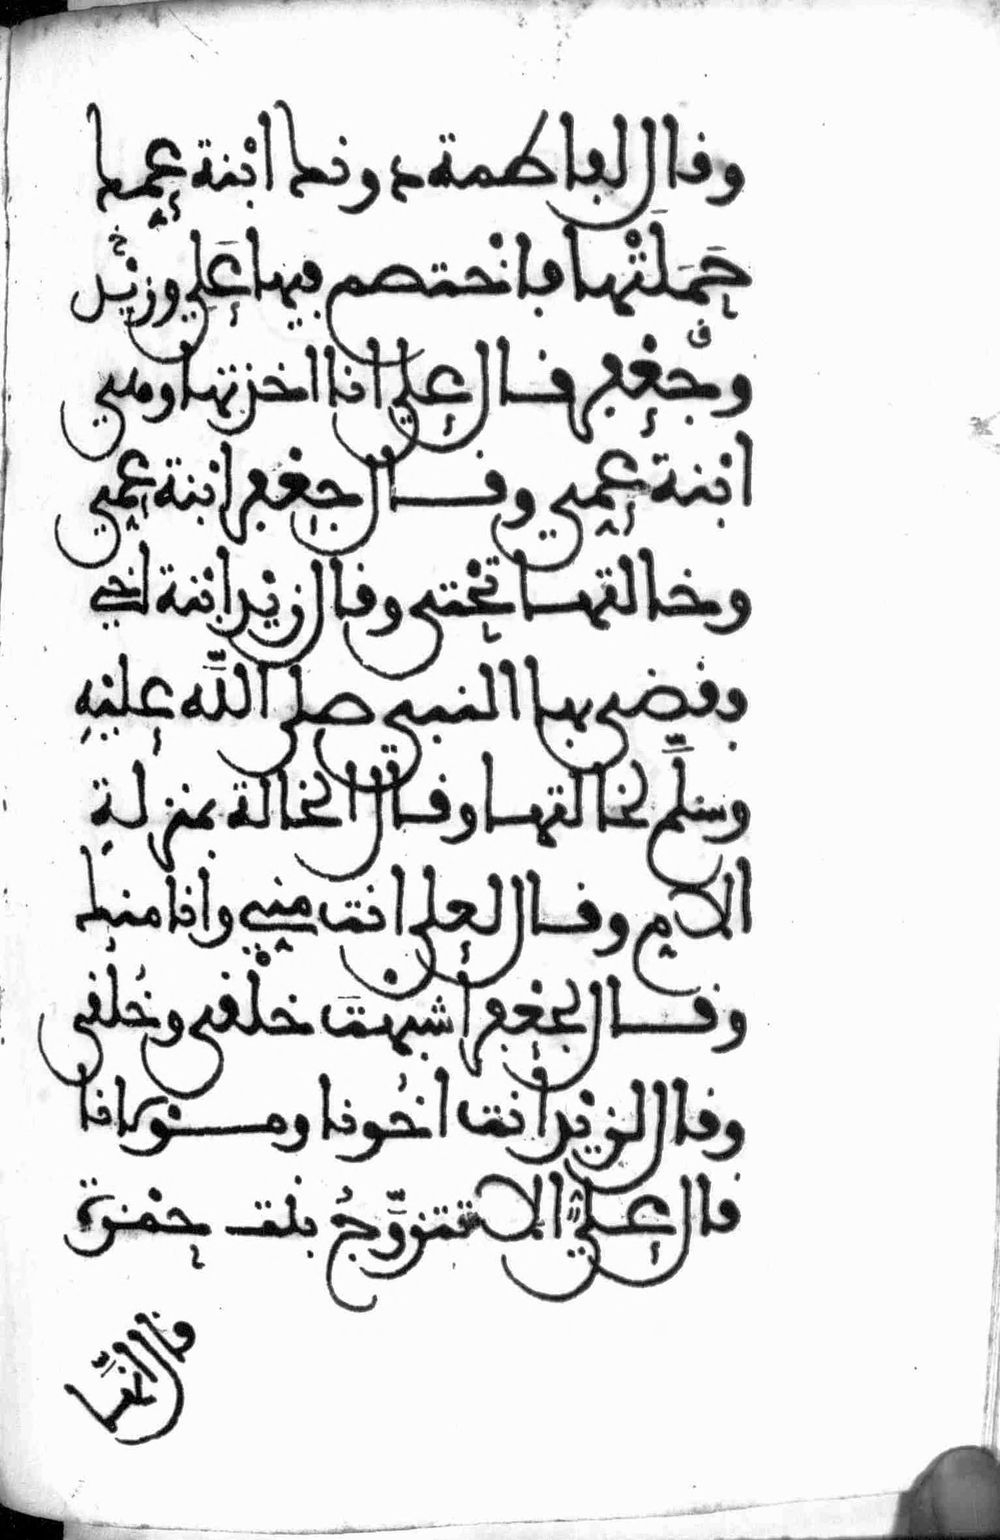 وقال لفاطمة دونك ابنة عمك
حَمَلَتْها فاختصم فيها عَلي وزيْد
وجعفر فقال علي انا اخذتها وهي
ابنة عمي وقال جعفر ابنة عمي
وخالتها تحتي وقال زيد ابنة اخي
فقضى بها النبي صلى اللّه عليه
وسلّم لخالتها وقال الخالة بمنزلة
الام وقال لعلي انت مني وانا منك
وقال لجعفر اشبهتَ خلْقي وخُلُقي
وقال لزيد انت اخُونا ومولانا
قال علي الا تتزوّجُ بنت حمزة
قال انّها